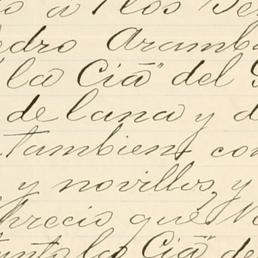 a los
edro Aramb
"la Ciā" del
de lana y d
tambien con
y novillos, y
precio que
la Ciā" de